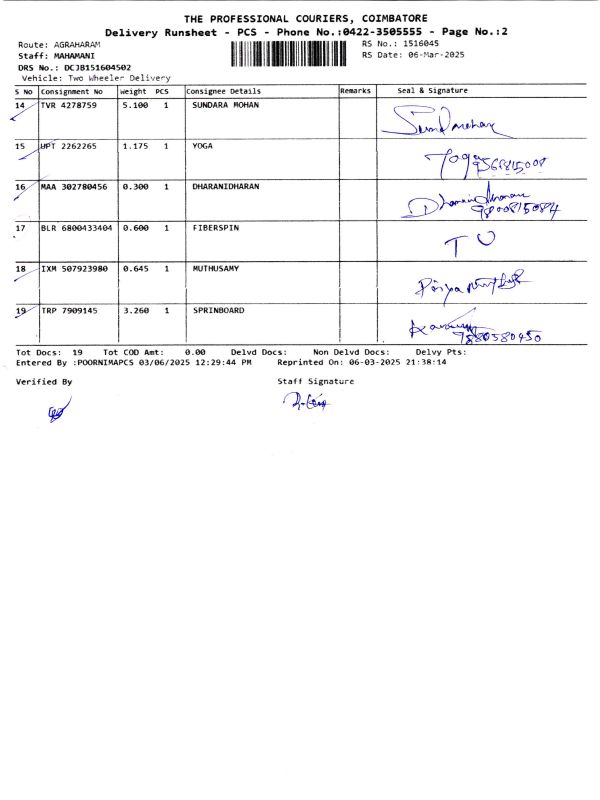 THE PROFESSIONAL COURIERS, COIMBATORE
Delivery Runsheet - PCS - Phone No.:0422-3505555 - Page No.:2
Route: AGRAHARAM RS No.: 1516045
Staff: MAHAMANI RS Date: 06-Mar-2025
DRS No.: DCJB151604502
Vehicle: Two Wheeler Delivery
S No Consignment No Weight PCS Consignee Details Remarks Seal & Signature
14 TVR 4278759 5.100 1 SUNDARA MOHAN
15 UPT 2262265 1.175 1 YOGA Yoga
16 MAA 302780456 0.300 1 DHARANIDHARAN
9800815084
17 BLR 6800433404 0.600 1 FIBERSPIN
18 IXM 507923980 0.645 1 MUTHUSAMY
19 TRP 7909145 3.260 1 SPRINBOARD
9880580450
Tot Docs: 19 Tot COD Amt: 0.00 Delvd Docs: Non Delvd Docs: Delvy Pts:
Entered By :POORNIMAPCS 03/06/2025 12:29:44 PM Reprinted On: 06-03-2025 21:38:14
Verified By Staff Signature